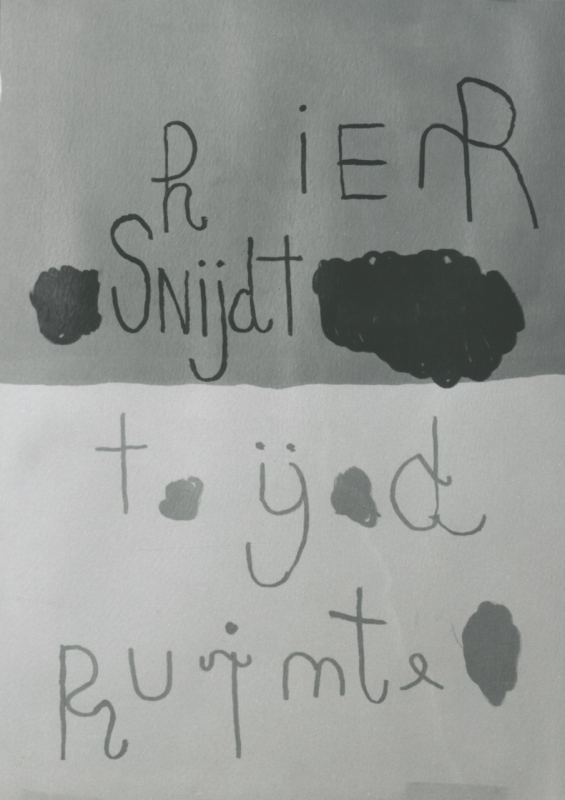 R iER
Snijdt
t ij d
Ruimte